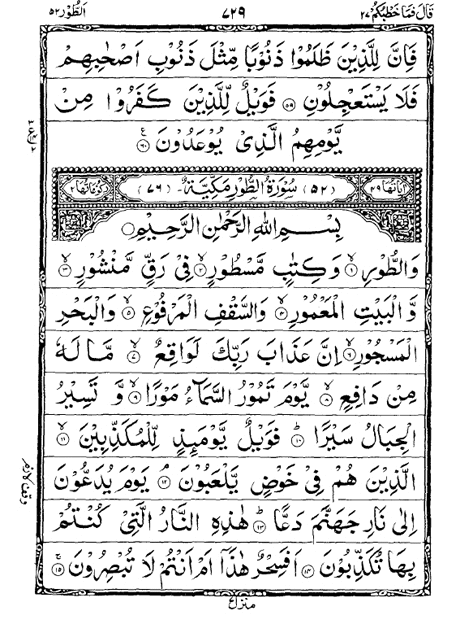 قَالَ فَمَا خَطْبُكُمْ ٢٧ ٧٢٩ الطُّوْر ٥٢
فَاِنَّ لِلَّذِيْنَ ظَلَمُوْا ذَنُوْبًا مِّثْلَ ذَنُوْبِ اَصْحٰبِهِمْ
فَلَا يَسْتَعْجِلُوْنِ ٥٩ فَوَيْلٌ لِّلَّذِيْنَ كَفَرُوْا مِنْ
يَّوْمِهِمُ الَّذِيْ يُوْعَدُوْنَ ٦٠
اٰيَاتُهَا ٤٩ (٥٢) سُوْرَةُ الطُّوْرِ مَكِّيَّةٌ (٧٦) رُكُوْعَاتُهَا ٢
بِسْمِ اللّٰهِ الرَّحْمٰنِ الرَّحِيْمِ
وَالطُّوْرِ ١ وَكِتٰبٍ مَّسْطُوْرٍ ٢ فِيْ رَقٍّ مَّنْشُوْرٍ ٣
وَّ الْبَيْتِ الْمَعْمُوْرِ ٤ وَالسَّقْفِ الْمَرْفُوْعِ ٥ وَالْبَحْرِ
الْمَسْجُوْرِ ٦ اِنَّ عَذَابَ رَبِّكَ لَوَاقِعٌ ٧ مَّا لَهٗ
مِنْ دَافِعٍ ٨ يَّوْمَ تَمُوْرُ السَّمَآءُ مَوْرًا ٩ وَّ تَسِيْرُ
الْجِبَالُ سَيْرًا ١٠ فَوَيْلٌ يَّوْمَئِذٍ لِّلْمُكَذِّبِيْنَ ١١
الَّذِيْنَ هُمْ فِيْ خَوْضٍ يَّلْعَبُوْنَ ١٢ يَوْمَ يُدَعُّوْنَ
اِلٰى نَارِ جَهَنَّمَ دَعًّا ١٣ هٰذِهِ النَّارُ الَّتِيْ كُنْتُمْ
بِهَا تُكَذِّبُوْنَ ١٤ اَفَسِحْرٌ هٰذَآ اَمْ اَنْتُمْ لَا تُبْصِرُوْنَ ١٥
منزل